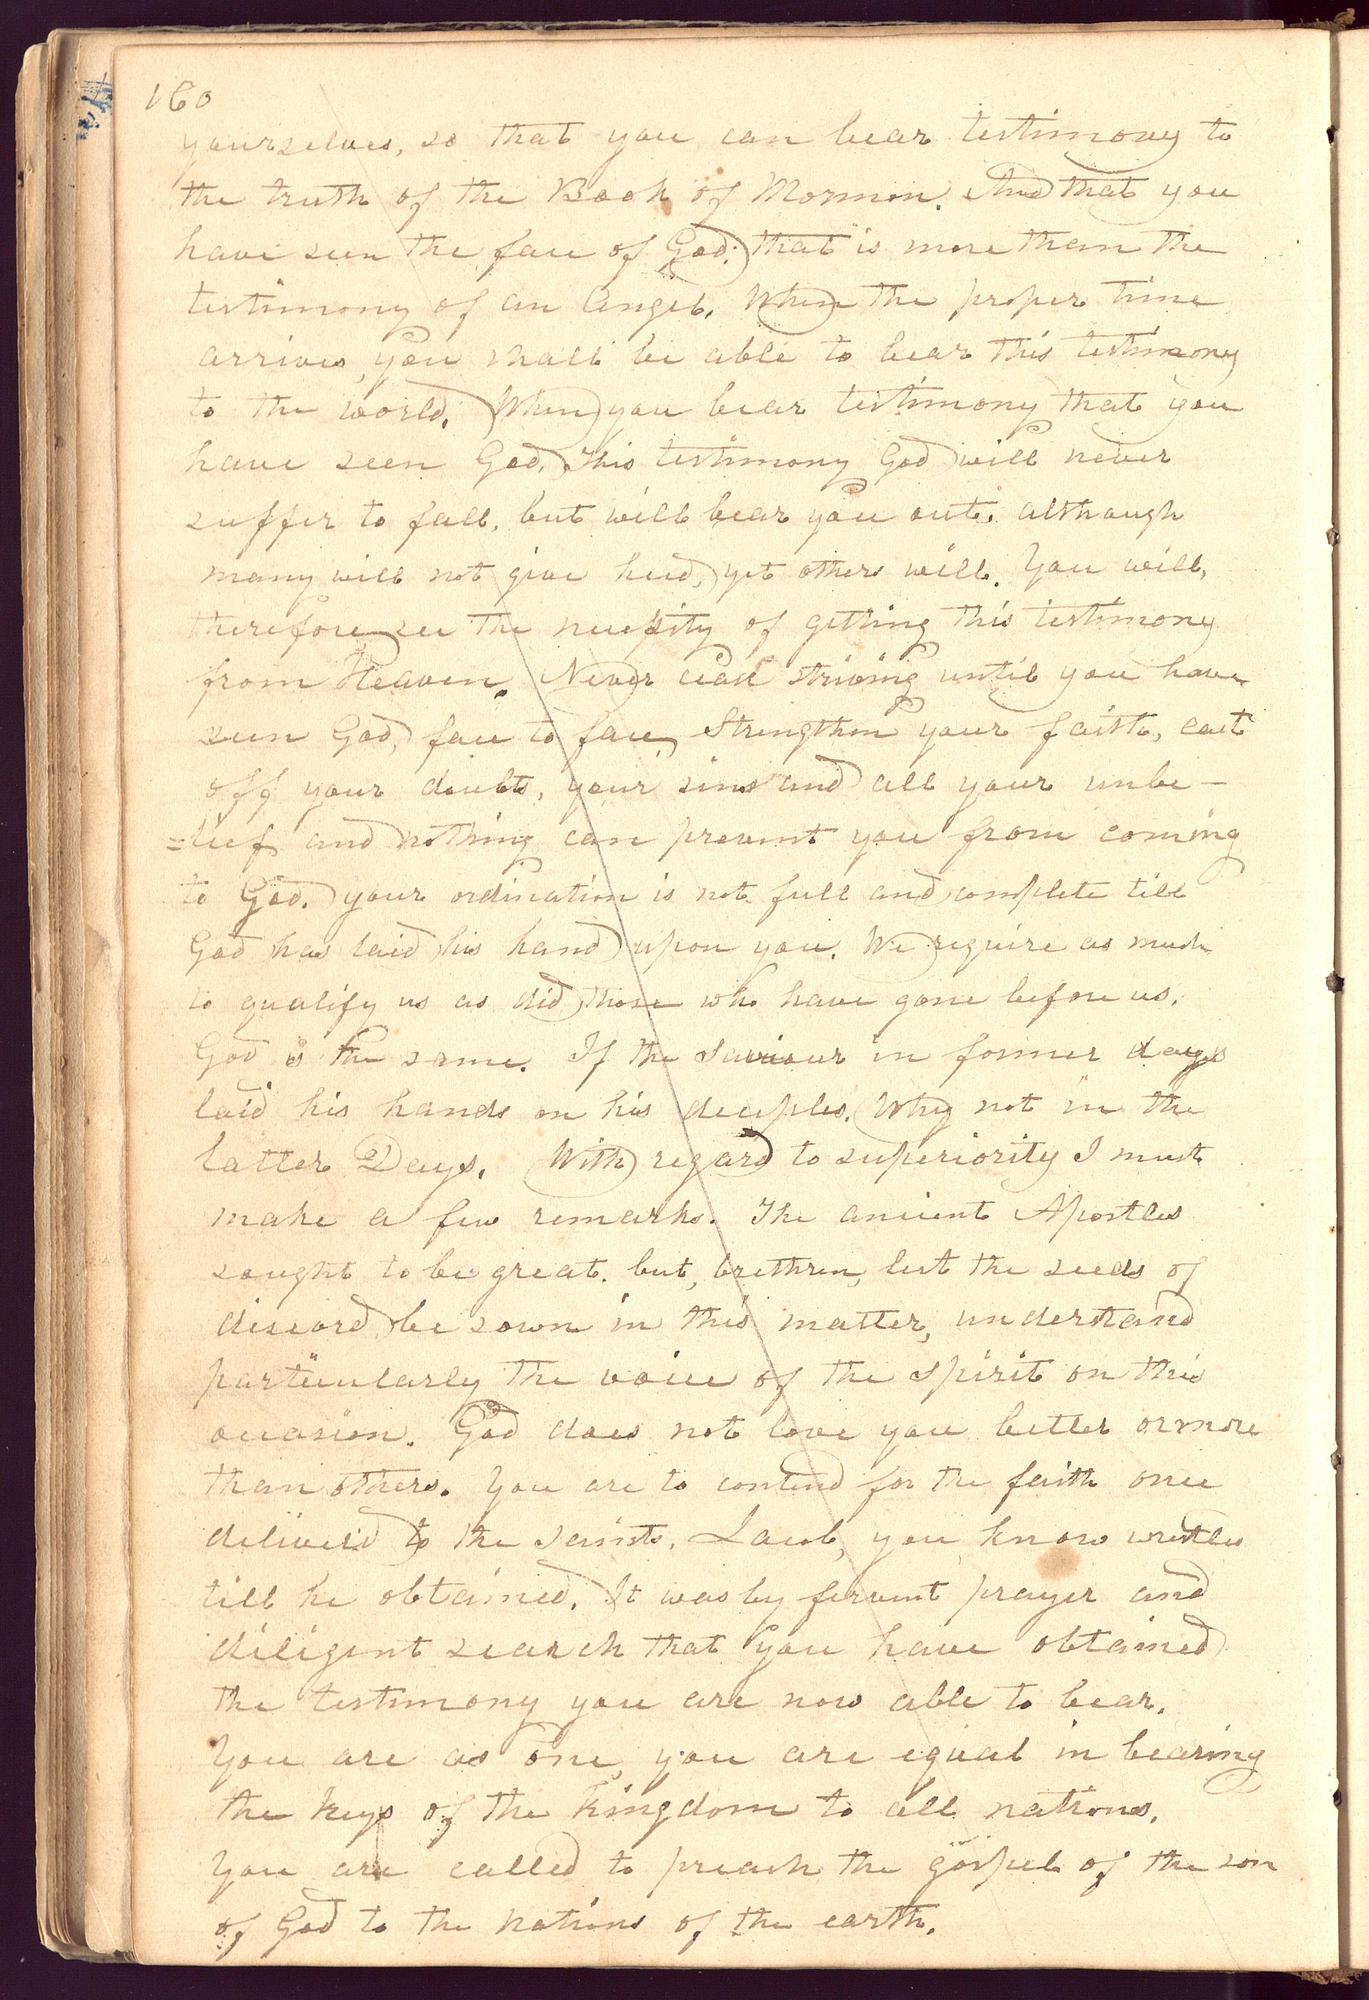 160
yourselves, so that you can bear testimony to
the truth of the Book of Mormon. And that you
have seen the face of God; that is more than the
testimony of an Angel. When the proper time
arrives, you shall be able to bear this testimony
to the world. When you bear testimony that you
have seen God, This testimony God will never
suffer to fall, but will bear you out. although
many will not give heed, yet others will. You will,
therefore see the necessity of getting this testimony
from Heaven. Never cease striving until you have
seen God, face to face, Strengthen your faith, cast
off your doubts, your sins and all your unbe-
=lief and nothing can prevent you from coming
to God. your ordination is not full and complete till
God has laid his hand upon you. We require as much
to qualify us as did those who have gone before us.
God is the same. If the Saviour in former days
laid his hands on his deciples. Why not in the
latter Days. With regard to superiority I must
make a few remarks. The ancient Apostles
sought to be great. but, brethren, lest the seeds of
discord be sown in this matter, understand
particularly the voice of the spirit on this
occasion. God does not love you better or more
than others. You are to contend for the faith once
deliverd to the saints. Jacob, you know wrestled
till he obtained. It was by fervent prayer and
diligent search that you have obtained
the testimony you are now able to bear.
You are as one, you are equal in bearing
the keys of the kingdom to all nations.
You are called to preach the gospel of the son
of God to the nations of the earth.